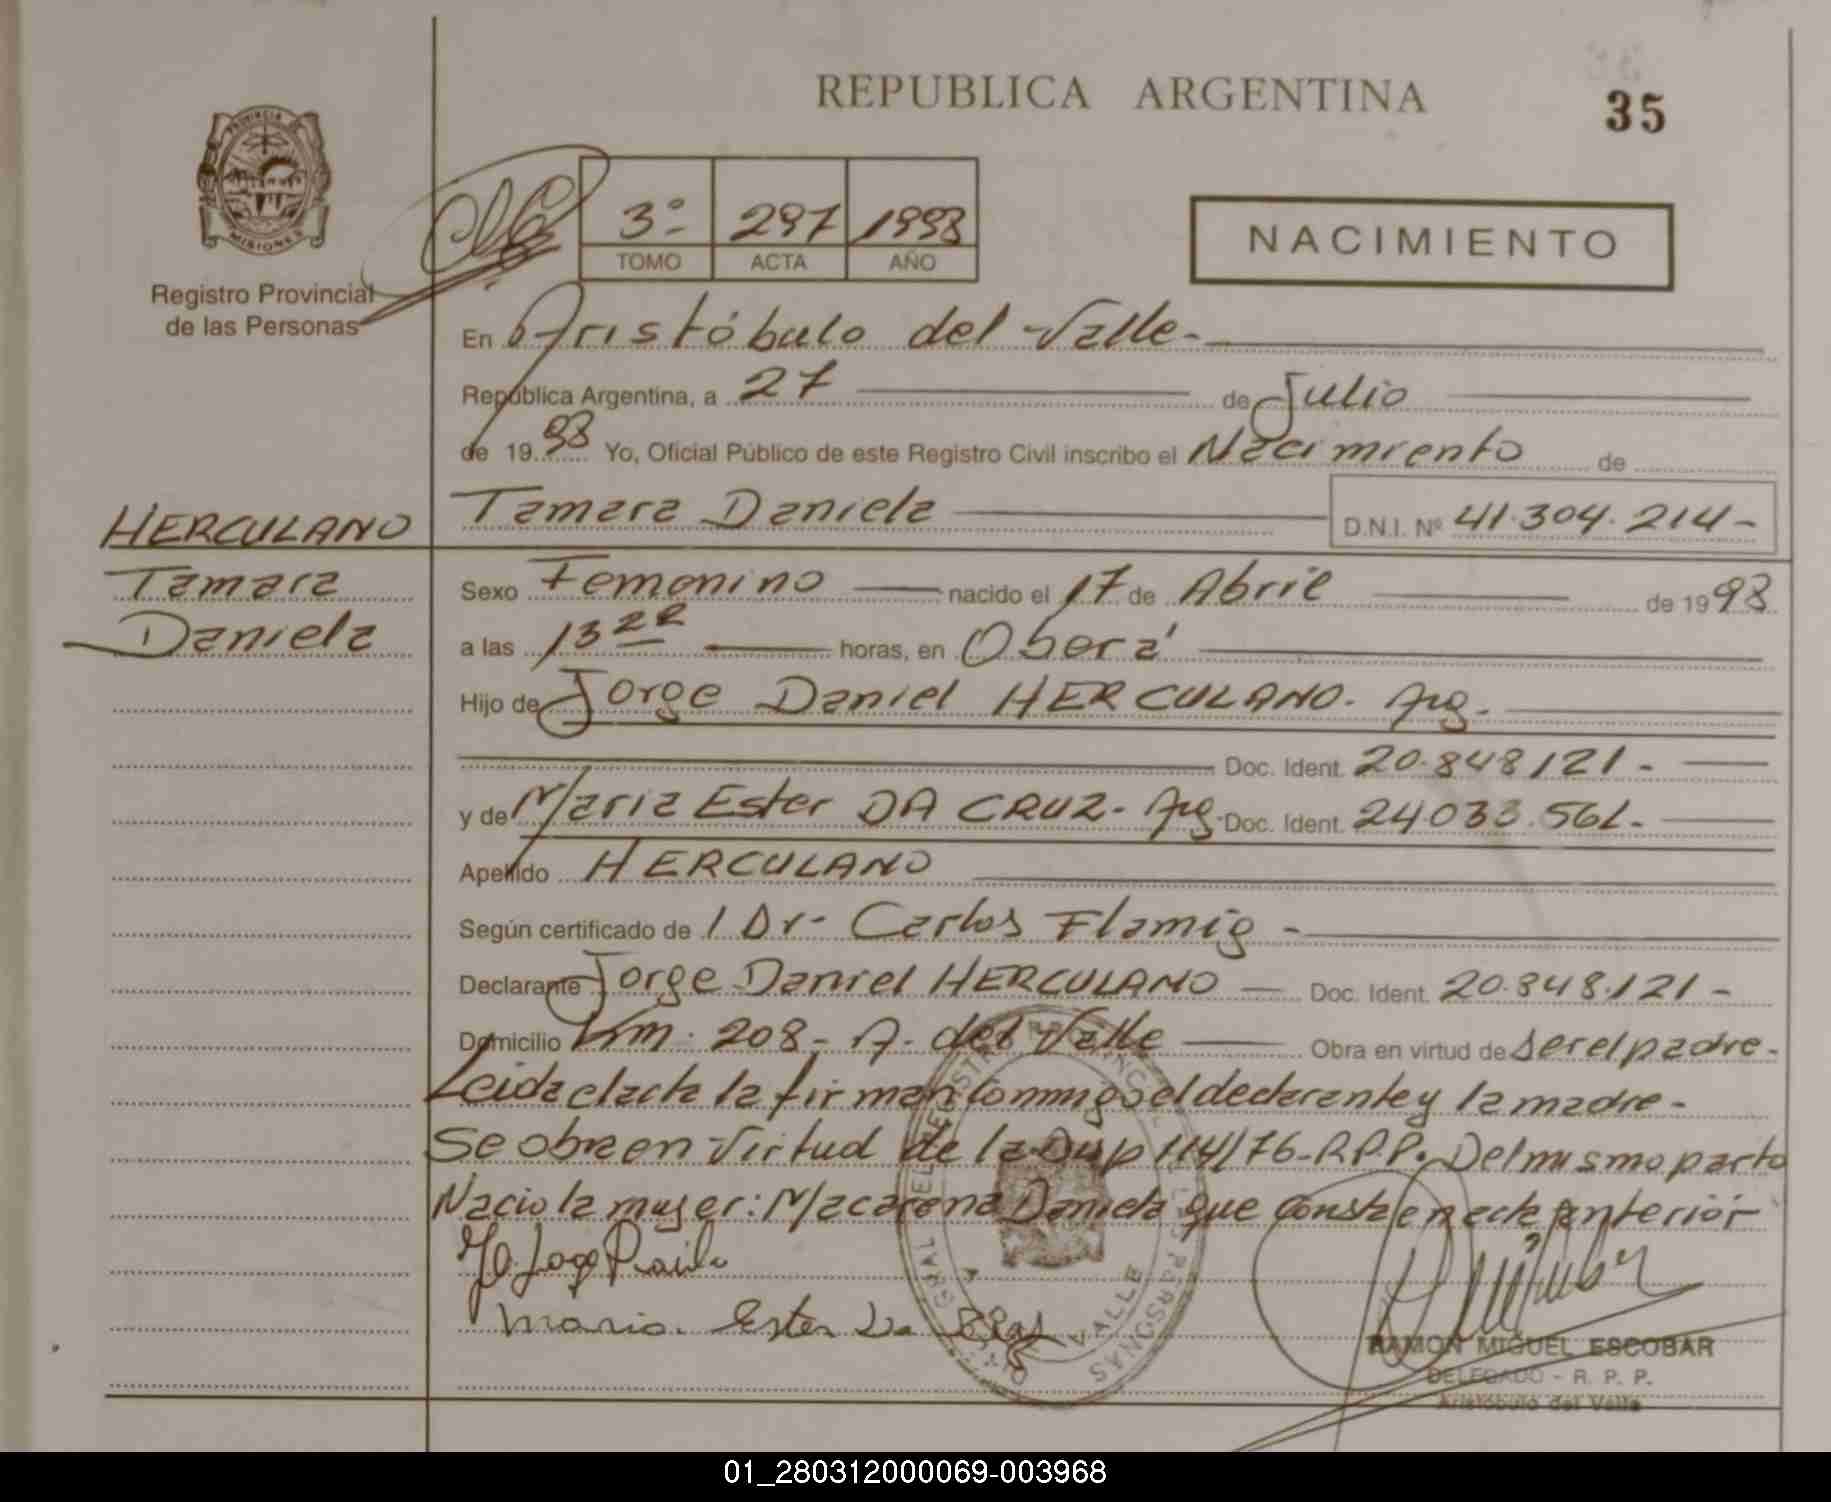 REPUBLICA ARGENTINA
35
PROVINCIA DE
MISIONES
Registro Provincial
de las Personas
3º 297 1998
TOMO ACTA AÑO
NACIMIENTO
En Aristóbulo del Valle-
República Argentina, a 27 de Julio
de 1998 Yo, Oficial Público de este Registro Civil inscribo el Nacimiento de
HERCULANO
Tamara
Daniela
Tamara Daniela D.N.I. Nº 41.304.214-
Sexo Femenino nacido el 17 de Abril de 1998
a las 13 horas, en Oberá
Hijo de Jorge Daniel HERCULANO. Arg.
Doc. Ident. 20.848.121-
y de Maria Ester DA CRUZ- Arg. Doc. Ident. 24.033.561-
Apellido HERCULANO
Según certificado de l Dr. Carlos Flamig-
Declarante Jorge Daniel HERCULANO Doc. Ident. 20.848.121-
Domicilio Km. 208- A. del Valle Obra en virtud de ser el padre-
Leida el acta la firman conmigo el declarante y la madre-
Se obra en Virtud de la Disp 114/76-R.P.P. Del mismo parto
Nacio la mujer: Macarena Daniela que consta en acta anterior
Maria Ester Da
RAMON MIGUEL ESCOBAR
DELEGADO - R. P. P.
Aristóbulo del Valle
01_280312000069-003968